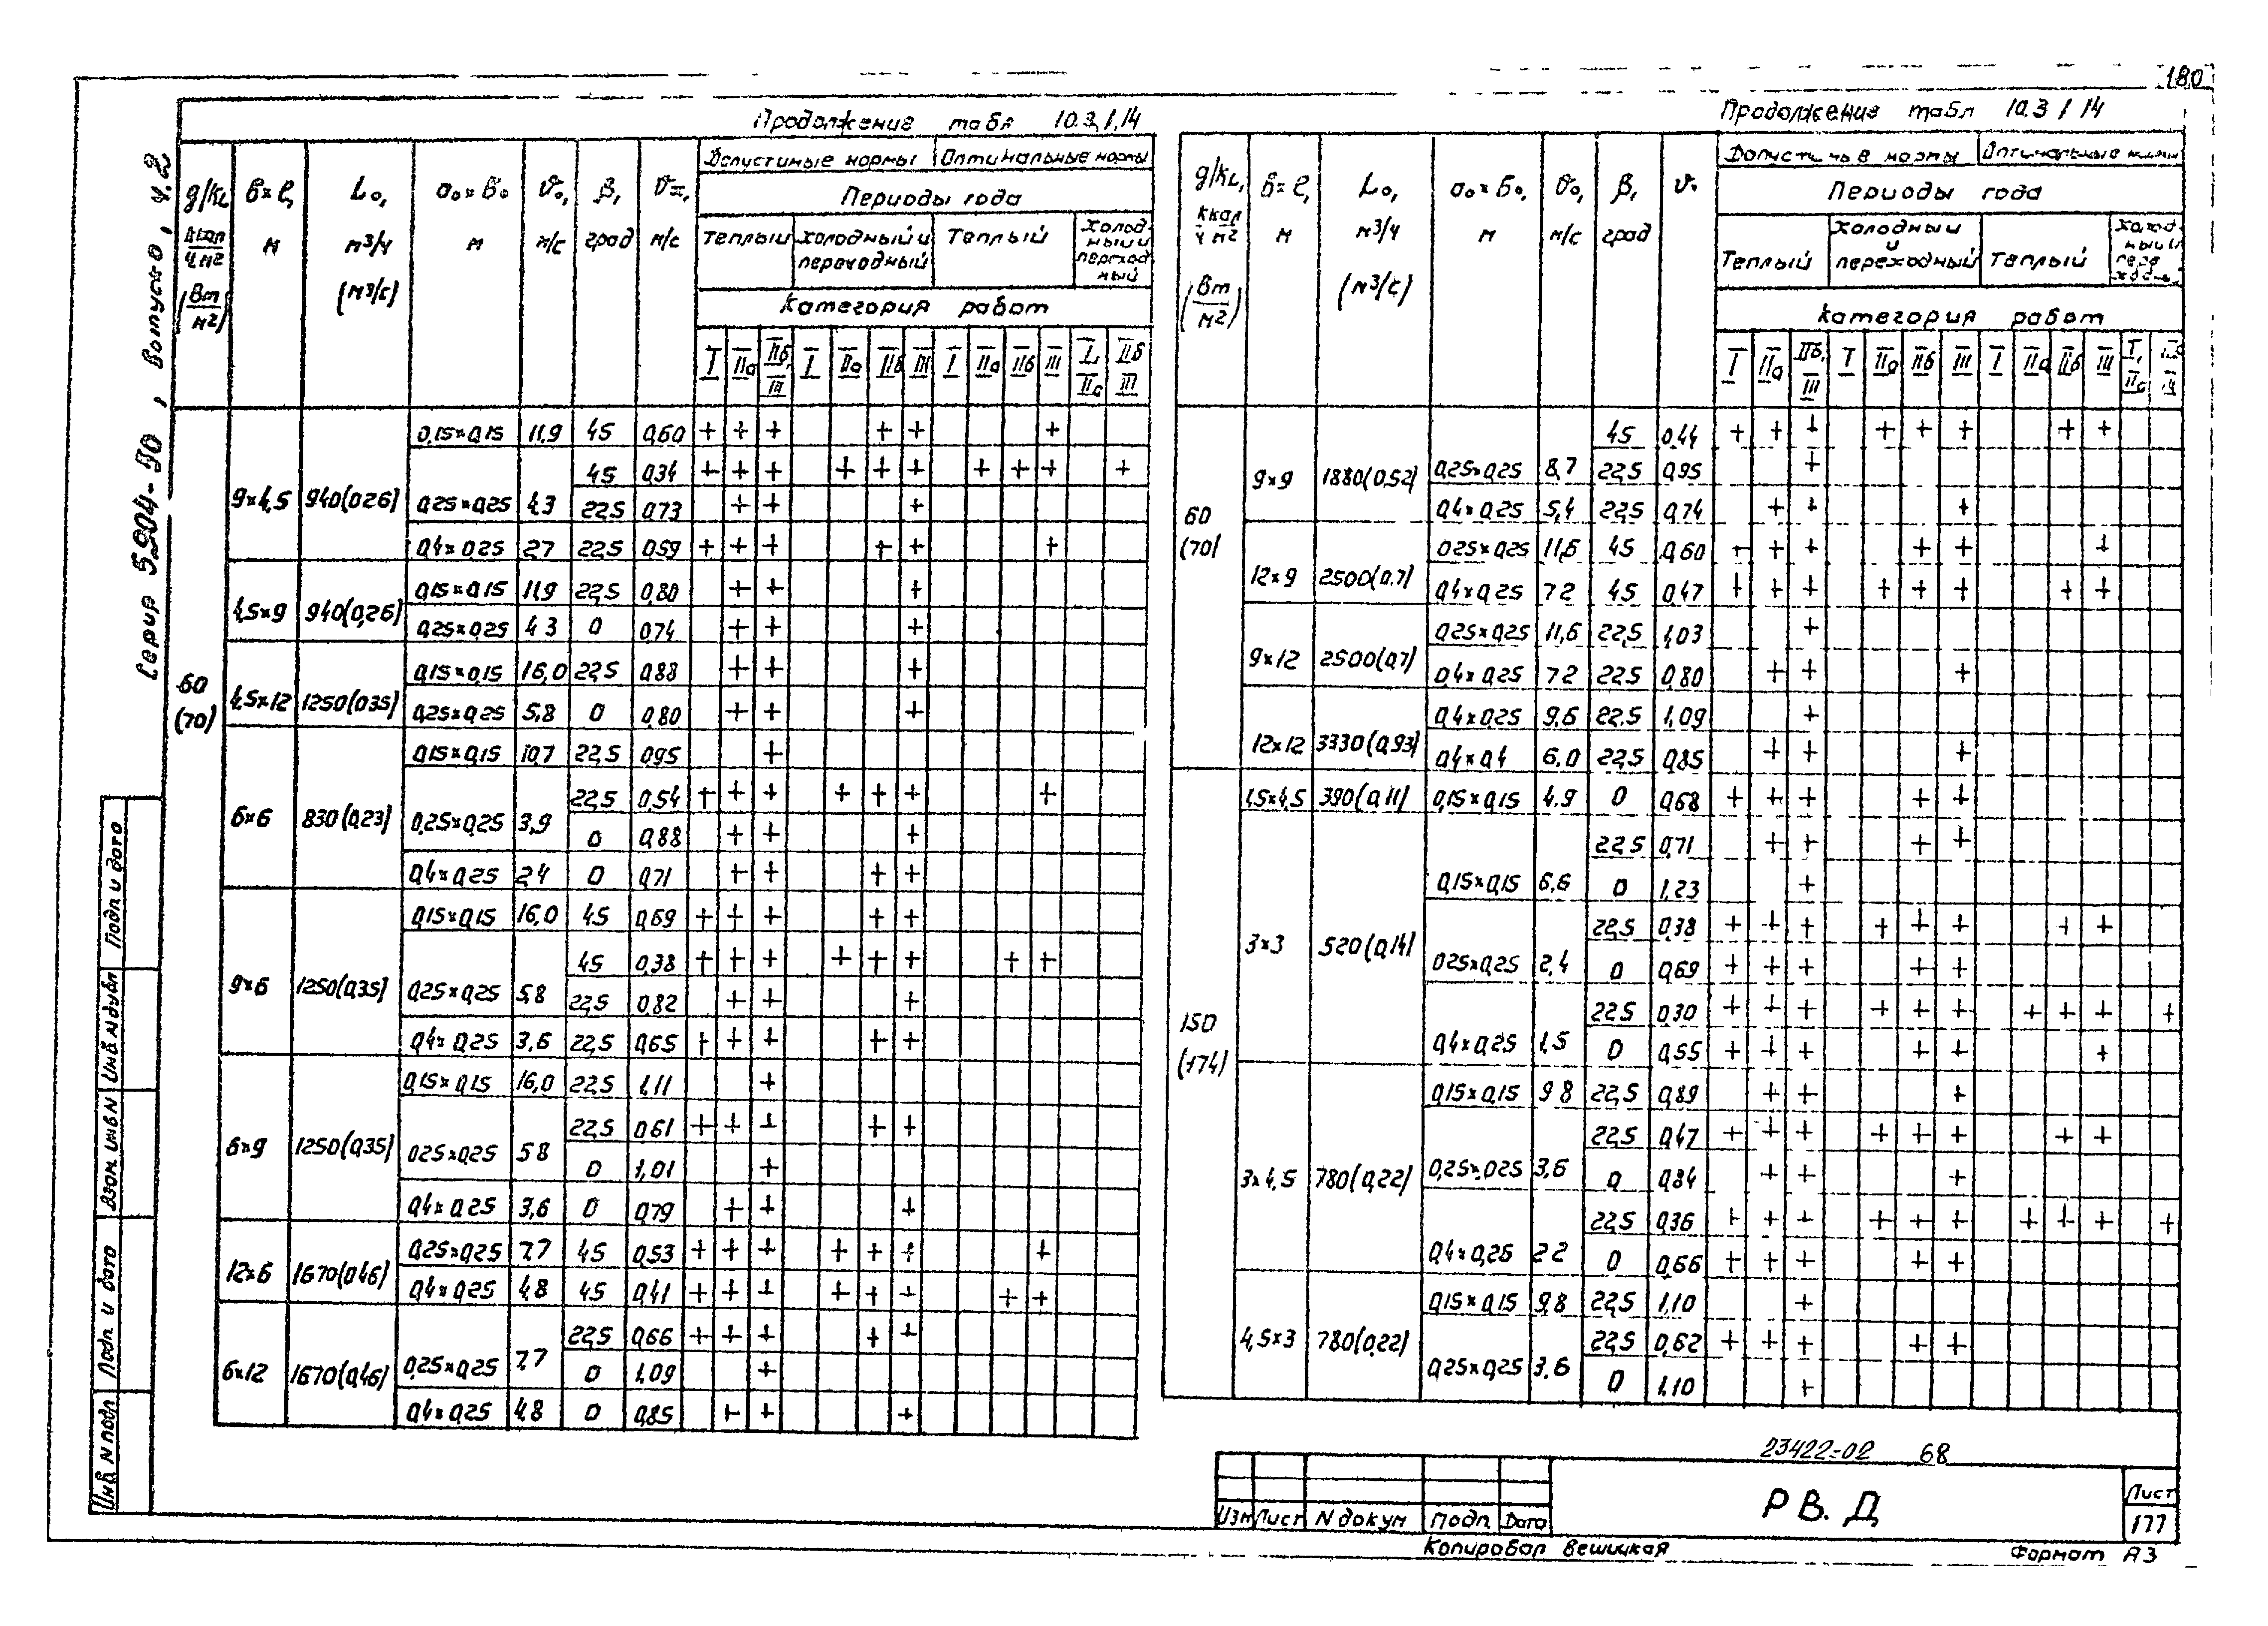 180
Серия 5.904-50, Выпуск 0, ч.2
Продолжение табл 10.3.1.14
g/kL, ккал/ч м2 (Вт/м2) | в×ℓ, м | Lо, м3/ч (м3/с) | aо×бо, м | υо, м/с | β, град | υх, м/с | Допустимые нормы | Оптимальные нормы
Периоды года
Теплый | Холодный и переходный | Теплый | Холодный и переходный
Категория работ
I | IIа | IIб, III | I | IIа | IIб | III | I | IIа | IIб | III | I, IIа | IIб III
60 (70)
9×4,5 | 940(0,26) | 0,15×0,15 | 11,9 | 45 | 0,60 | + + + + + +
0,25×0,25 | 4,3 | 45 | 0,34 | + + + + + + + + + +
22,5 | 0,73 | + + +
0,4×0,25 | 2,7 | 22,5 | 0,59 | + + + + + +
4,5×9 | 940(0,26) | 0,15×0,15 | 11,9 | 22,5 | 0,80 | + + +
0,25×0,25 | 4,3 | 0 | 0,74 | + + +
4,5×12 | 1250(0,35) | 0,15×0,15 | 16,0 | 22,5 | 0,88 | + + +
0,25×0,25 | 5,8 | 0 | 0,80 | + + +
6×6 | 830(0,23) | 0,15×0,15 | 10,7 | 22,5 | 0,95 | +
0,25×0,25 | 3,9 | 22,5 | 0,54 | + + + + + + +
0 | 0,88 | + + +
0,4×0,25 | 2,4 | 0 | 0,71 | + + + +
9×6 | 1250(0,35) | 0,15×0,15 | 16,0 | 45 | 0,69 | + + + + +
0,25×0,25 | 5,8 | 45 | 0,38 | + + + + + + + +
22,5 | 0,82 | + + +
0,4×0,25 | 3,6 | 22,5 | 0,65 | + + + + +
6×9 | 1250(0,35) | 0,15×0,15 | 16,0 | 22,5 | 1,11 | +
0,25×0,25 | 5,8 | 22,5 | 0,61 | + + + + +
0 | 1,01 | +
0,4×0,25 | 3,6 | 0 | 0,79 | + + +
12×6 | 1670(0,46) | 0,25×0,25 | 7,7 | 45 | 0,53 | + + + + + + +
0,4×0,25 | 4,8 | 45 | 0,41 | + + + + + + + +
6×12 | 1670(0,46) | 0,25×0,25 | 7,7 | 22,5 | 0,66 | + + + + +
0 | 1,09 | +
0,4×0,25 | 4,8 | 0 | 0,85 | + + +
Продолжение табл 10.3.1.14
g/kL, ккал/ч м2 (Вт/м2) | в×ℓ, м | Lо, м3/ч (м3/с) | aо×бо, м | υо, м/с | β, град | υ | Допустимые нормы | Оптимальные нормы
Периоды года
Теплый | Холодный и переходный | Теплый | Холодный и переходный
Категория работ
I | IIа | IIб, III | I | IIа | IIб | III | I | IIа | IIб | III | I, IIа
60 (70)
9×9 | 1880(0,52) | 0,25×0,25 | 8,7 | 45 | 0,44 | + + + + + + + +
22,5 | 0,95 | +
0,4×0,25 | 5,4 | 22,5 | 0,74 | + + +
12×9 | 2500(0,7) | 0,25×0,25 | 11,6 | 45 | 0,60 | + + + + + +
0,4×0,25 | 7,2 | 45 | 0,47 | + + + + + + + +
9×12 | 2500(0,7) | 0,25×0,25 | 11,6 | 22,5 | 1,03 | +
0,4×0,25 | 7,2 | 22,5 | 0,80 | + + +
12×12 | 3330(0,93) | 0,4×0,25 | 9,6 | 22,5 | 1,09 | +
0,4×0,4 | 6,0 | 22,5 | 0,85 | + + +
150 (174)
1,5×4,5 | 390(0,11) | 0,15×0,15 | 4,9 | 0 | 0,68 | + + + + +
3×3 | 520(0,14) | 0,15×0,15 | 6,6 | 22,5 | 0,71 | + + + +
0 | 1,23 | +
0,25×0,25 | 2,4 | 22,5 | 0,38 | + + + + + + + +
0 | 0,69 | + + + + +
0,4×0,25 | 1,5 | 22,5 | 0,30 | + + + + + + + + + +
0 | 0,55 | + + + + + +
3×4,5 | 780(0,22) | 0,15×0,15 | 9,8 | 22,5 | 0,89 | + + +
0,25×0,25 | 3,6 | 22,5 | 0,47 | + + + + + + + +
0 | 0,84 | + + +
0,4×0,25 | 2,2 | 22,5 | 0,36 | + + + + + + + + + +
0 | 0,66 | + + + + +
4,5×3 | 780(0,22) | 0,15×0,15 | 9,8 | 22,5 | 1,10 | +
0,25×0,25 | 3,6 | 22,5 | 0,62 | + + + + +
0 | 1,10 | +
Инв. N подл | Подп. и дата | Взам. инв N | Инв. N дубл | Подп. и дата
23422-02 68
Изм | Лист | N докум | Подп. | Дата
РВ.Д
Лист
177
Копировал Вешицкая
Формат А3